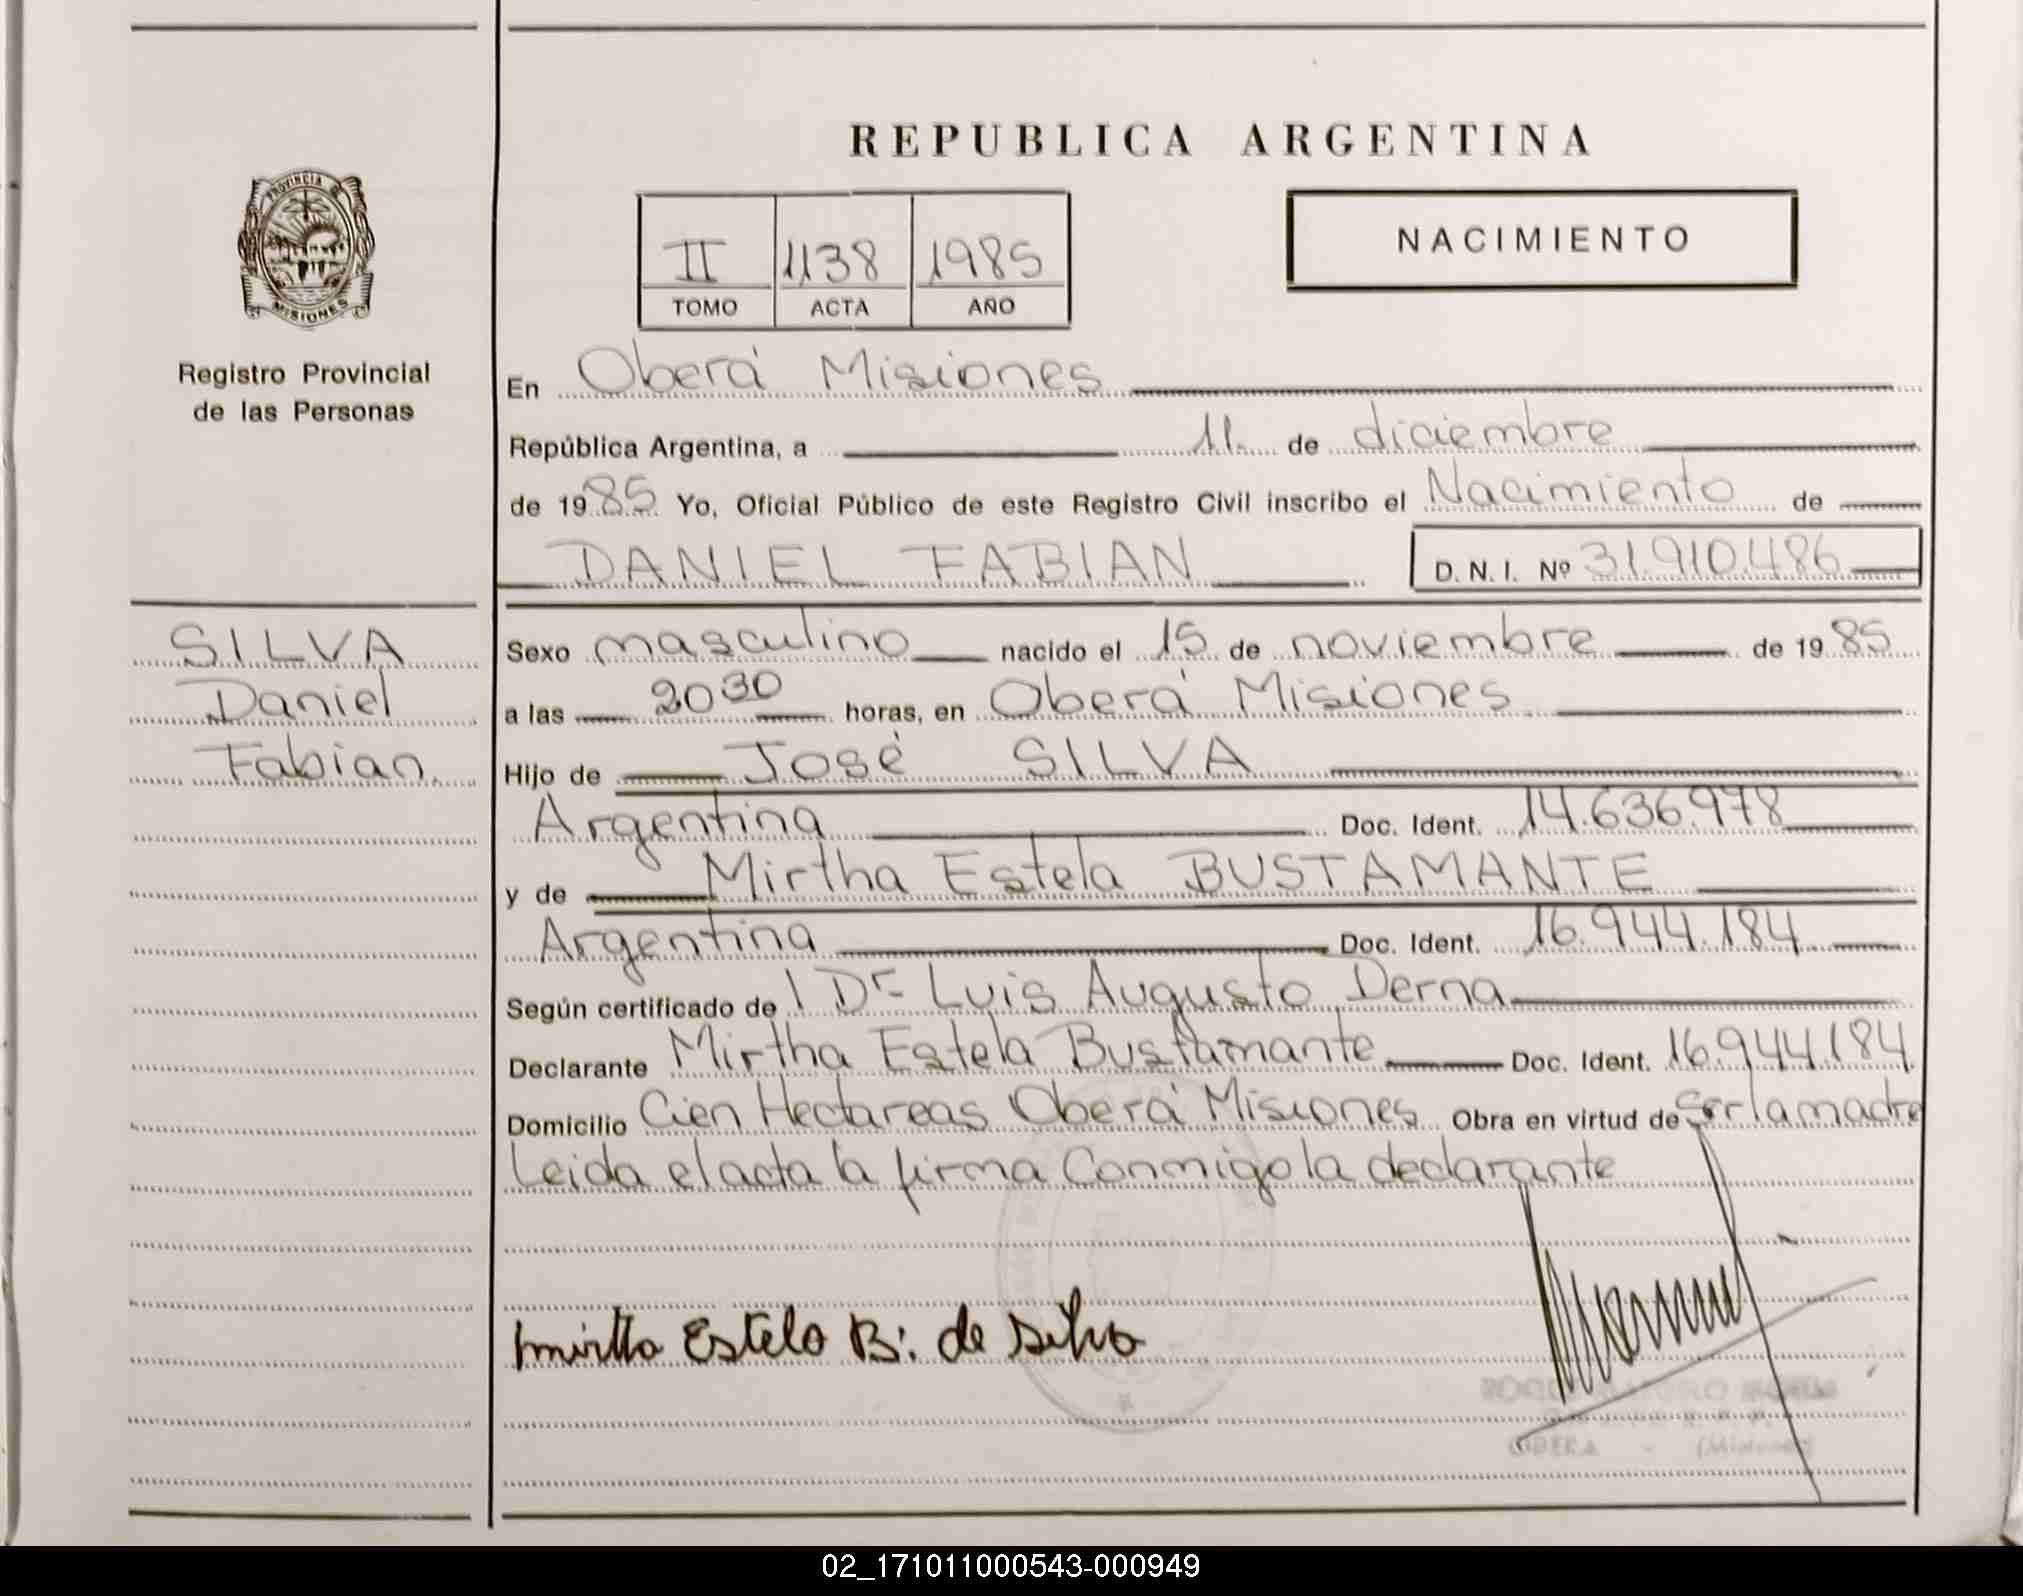 REPUBLICA ARGENTINA
PROVINCIA DE
MISIONES
Registro Provincial
de las Personas
NACIMIENTO
II 1138 1985
TOMO ACTA AÑO
En Oberá Misiones
República Argentina, a 11 de diciembre
de 1985 Yo, Oficial Público de este Registro Civil inscribo el Nacimiento de
DANIEL FABIAN D. N. I. Nº 31.910.486
SILVA
Daniel
Fabian
Sexo masculino nacido el 15 de noviembre de 1985
a las 20 30 horas, en Oberá Misiones
Hijo de José SILVA
Argentina Doc. Ident. 14.636.978
y de Mirtha Estela BUSTAMANTE
Argentina Doc. Ident. 16.944.184
Según certificado de l Dr Luis Augusto Derna
Declarante Mirtha Estela Bustamante Doc. Ident. 16.944.184
Domicilio Cien Hectareas Oberá Misiones Obra en virtud de ser la madre
Leida el acta la firma Conmigo la declarante
Mirtha Estela B. de Silva
02_171011000543-000949